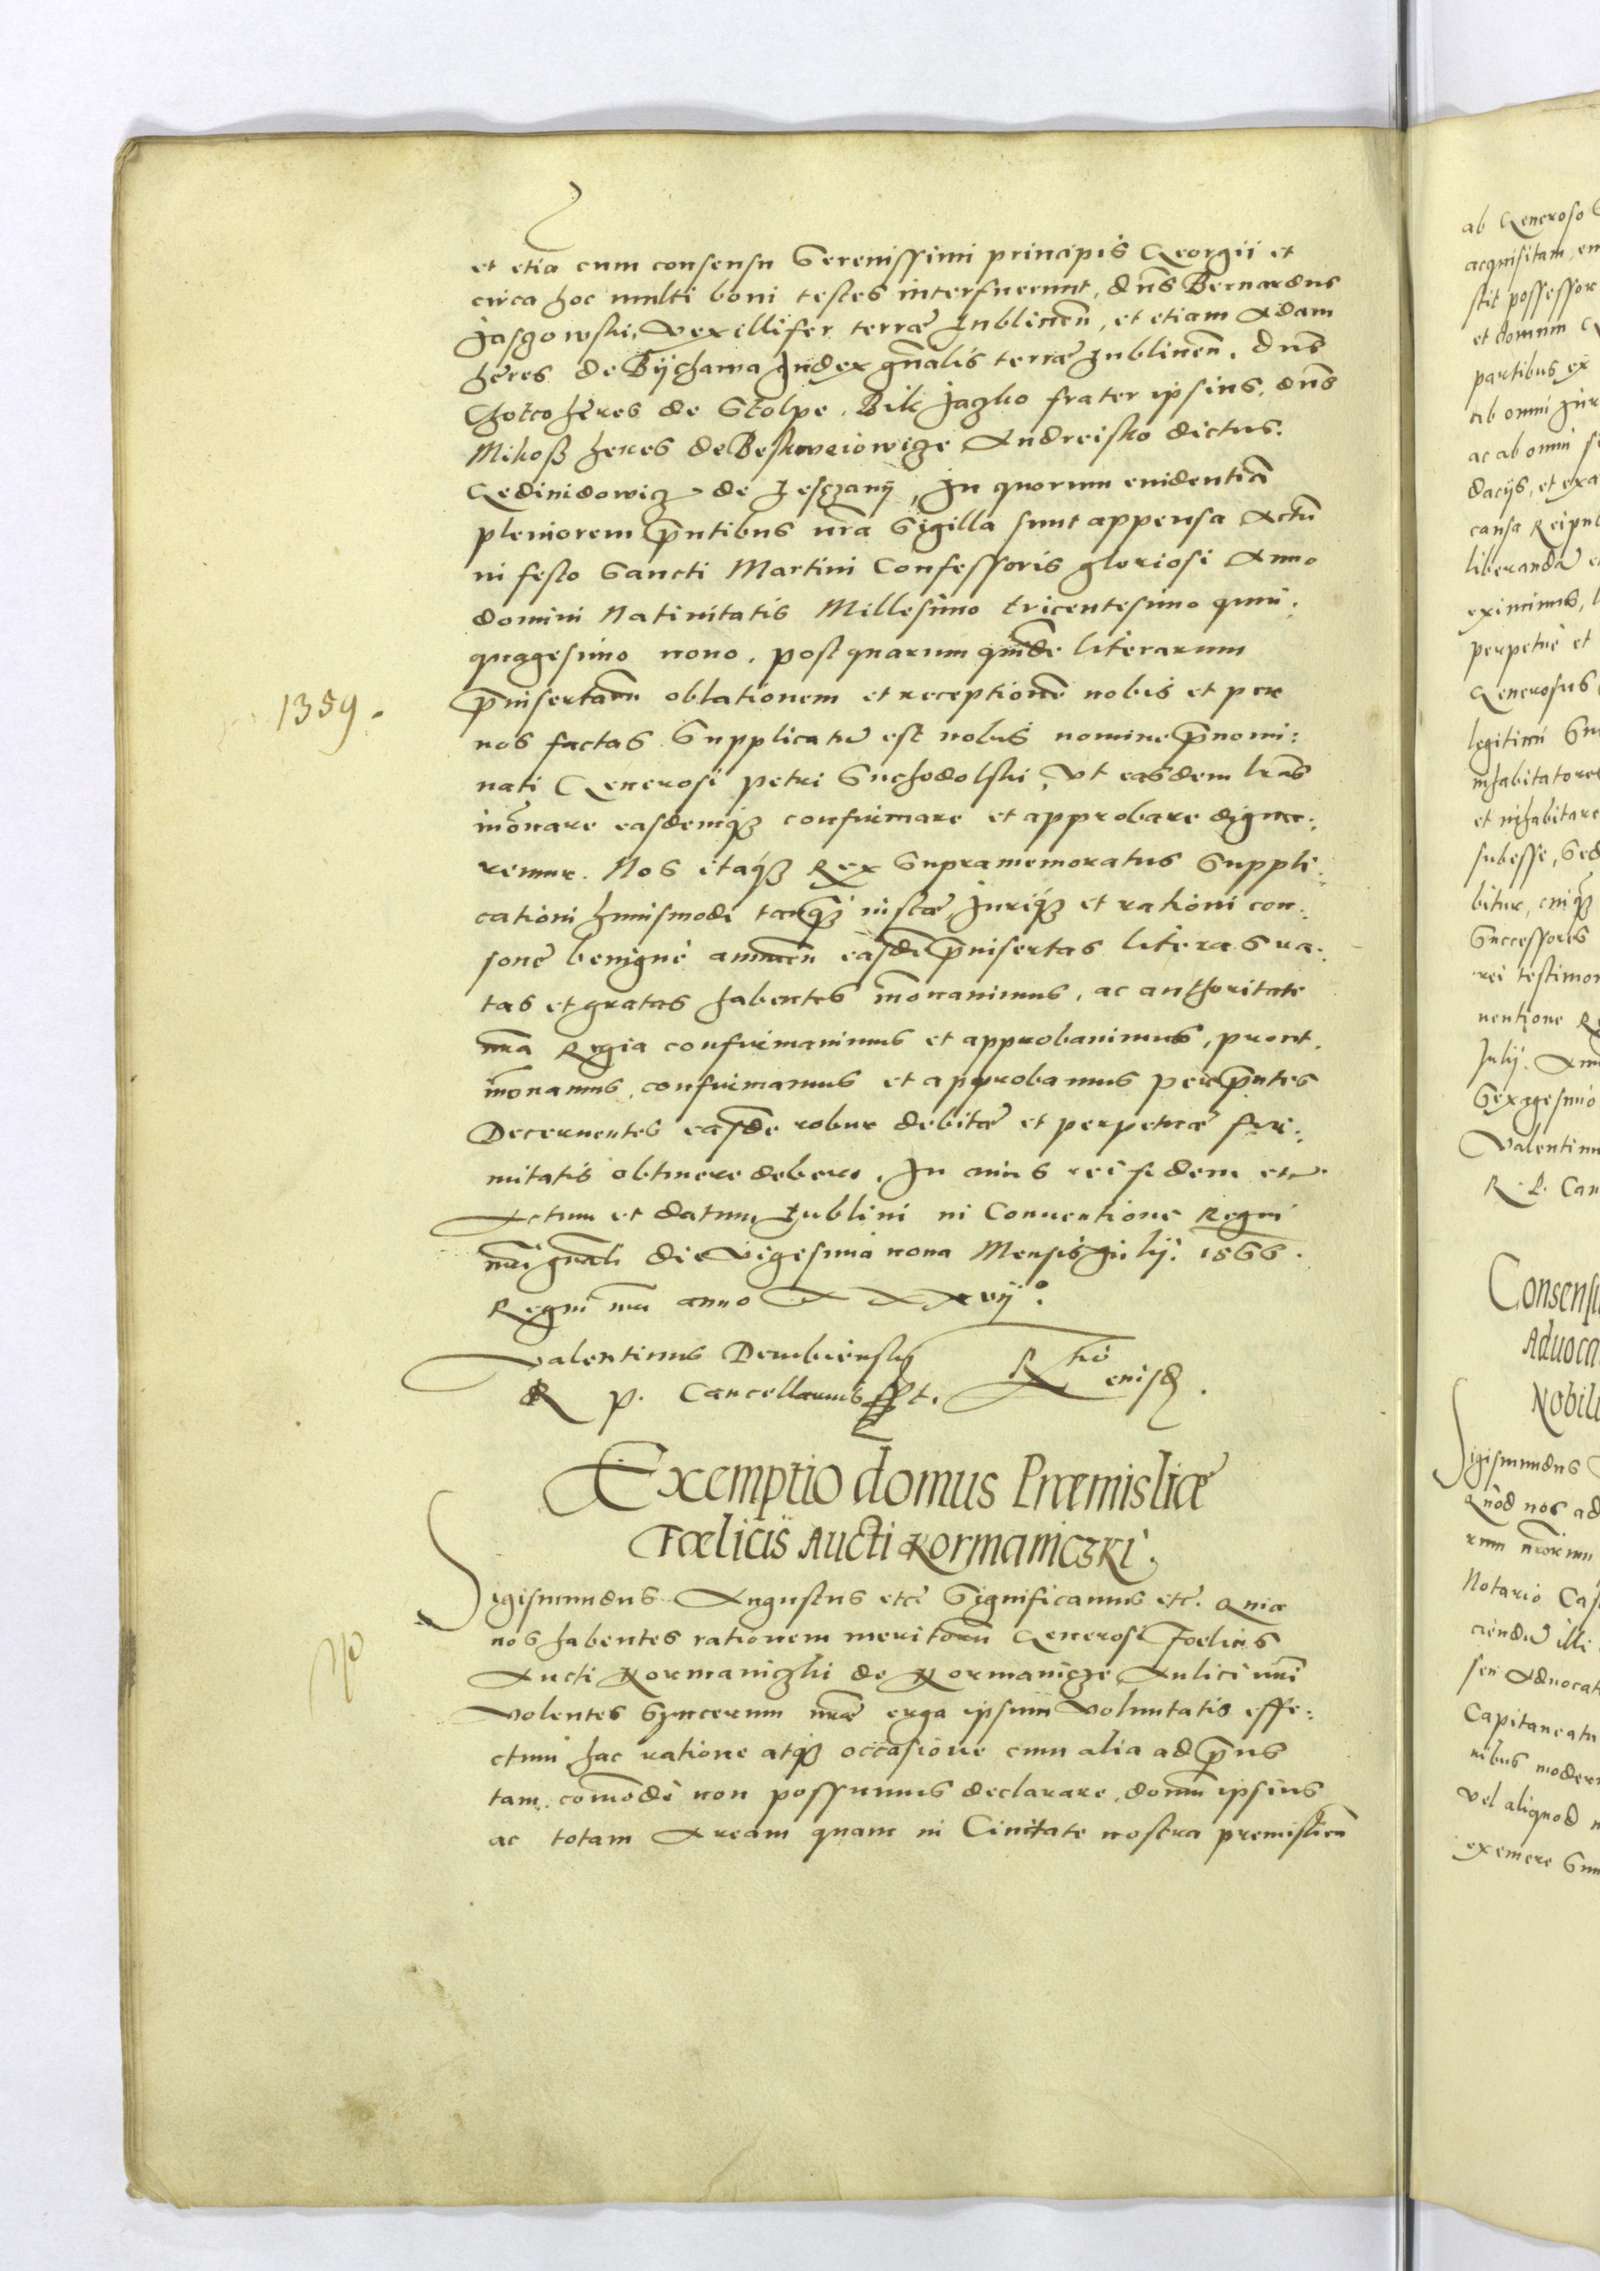 et etiã cum consensu Serenissimi principis Georgii et
circa hoc multi boni testes interfuerunt, dñs Bernardus
Jasgowski, Vexillifer terræ Lublineñ, et etiam Adam
heres de Bÿchawa Judex gñalis terræ Lublineñ. dñs
Chotco heres de Stolpe. Bilÿ Jaczko frater ipsius. dñs
Mikoß heres de Andreisko dictus.
Gedinidowicz de In quorum euidentiã
pleniorem p̃ntibus nr̃a Sigilla sunt appensa Actũ
in festo Sancti Martini Confessoris gloriosi Anno
domini Natiuitatis Millesimo tricentesimo quin:
quagesimo nono. post quarum quidẽ literarum
p̃insertarũ oblationem et receptionẽ nobis et per
1359.
nos factas Supplicatũ est nobis nomine p̃nomi:
nati Generosi Petri Suchodolski, Vt easdem lr̃as
inõuare easdemq3 confirmare et approbare digna:
remur. Nos itaq3 Rex Supramemoratus Suppli:
cationi huiusmodi tanq̃3 iustæ Juriq3 et rationi con:
sonæ benigne annueñ easdẽ p̃insertas literas ra:
tas et gratas habentes inõuauimus, ac authoritate
nr̃a Regia confirmauimus et approbauimus, prout
inõuamus, confirmamus et approbamus per p̃ntes
Decernentes easdẽ robur debitæ et perpetuæ fir:
mitatis obtinere debere. In cuius rei fidem etc
Actum et datum Lublini in Conuentione Regni
nr̃i gñali die Vigesima nona Mensis Julij. 1566.
Regni nr̃i anno XXXvij°.
Valentinus Dembiensky
R P. Cancellarius sst.
R<sup>tio</sup> eiusd.
Exemptio domus Præmisliæ
Fœlicis Aucti Kormaniczki.
Sigismundus Augustus etc̃ Significamus etc̃. Quia
nos habentes rationem meritorũ Generosi Foelicis
Aucti Kormaniczki de Kormanicze Aulici nr̃i
Volentes Syncerum nr̃æ erga ipsum Voluntatis effe:
ctum hac ratione atq3 occasione cum alia ad p̃ns
tam com̃odè non possumus declarare, domũ ipsius
ac totam Aream quam in Ciuitate nostra premislieñ
ab Generoso
acquisitam
stit possessor
et domum
partibus ex
ab omni Jur
ac ab omni
dacijs, et exa
causa Reipub
liberandã
eximimus,
perpetuè et
Generosus
legitimi
inhabitatores
et inhabitare
subesse, Sed
bitur, cuiq3
Successores
rei testimon
uentione Re
Julij.
Sexagesimo
Valentinu
R. P. Can
Consensu
Aduoca
Nobili
Sigismundus
Quod nos ad
rum nr̃orum
Notario Cas
ciendũ illi
seu Aduocat
Capitaneatu
nibus modern
vel aliquod
exemere